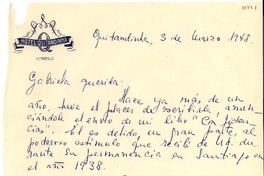 HOTEL QUITANDINHA
PETROPOLIS
Quitandinha, 3 de Marzo 1948.
Gabriela querida:
Hace ya más de un
año, tuve el placer de escribirle, anun-
ciándole el envío de mi libro "Confiden-
cias". Él es debido, en gran parte, al
poderoso estímulo que recibí de Ud. du-
rante su permanencia en Santiago en
el año 1938.